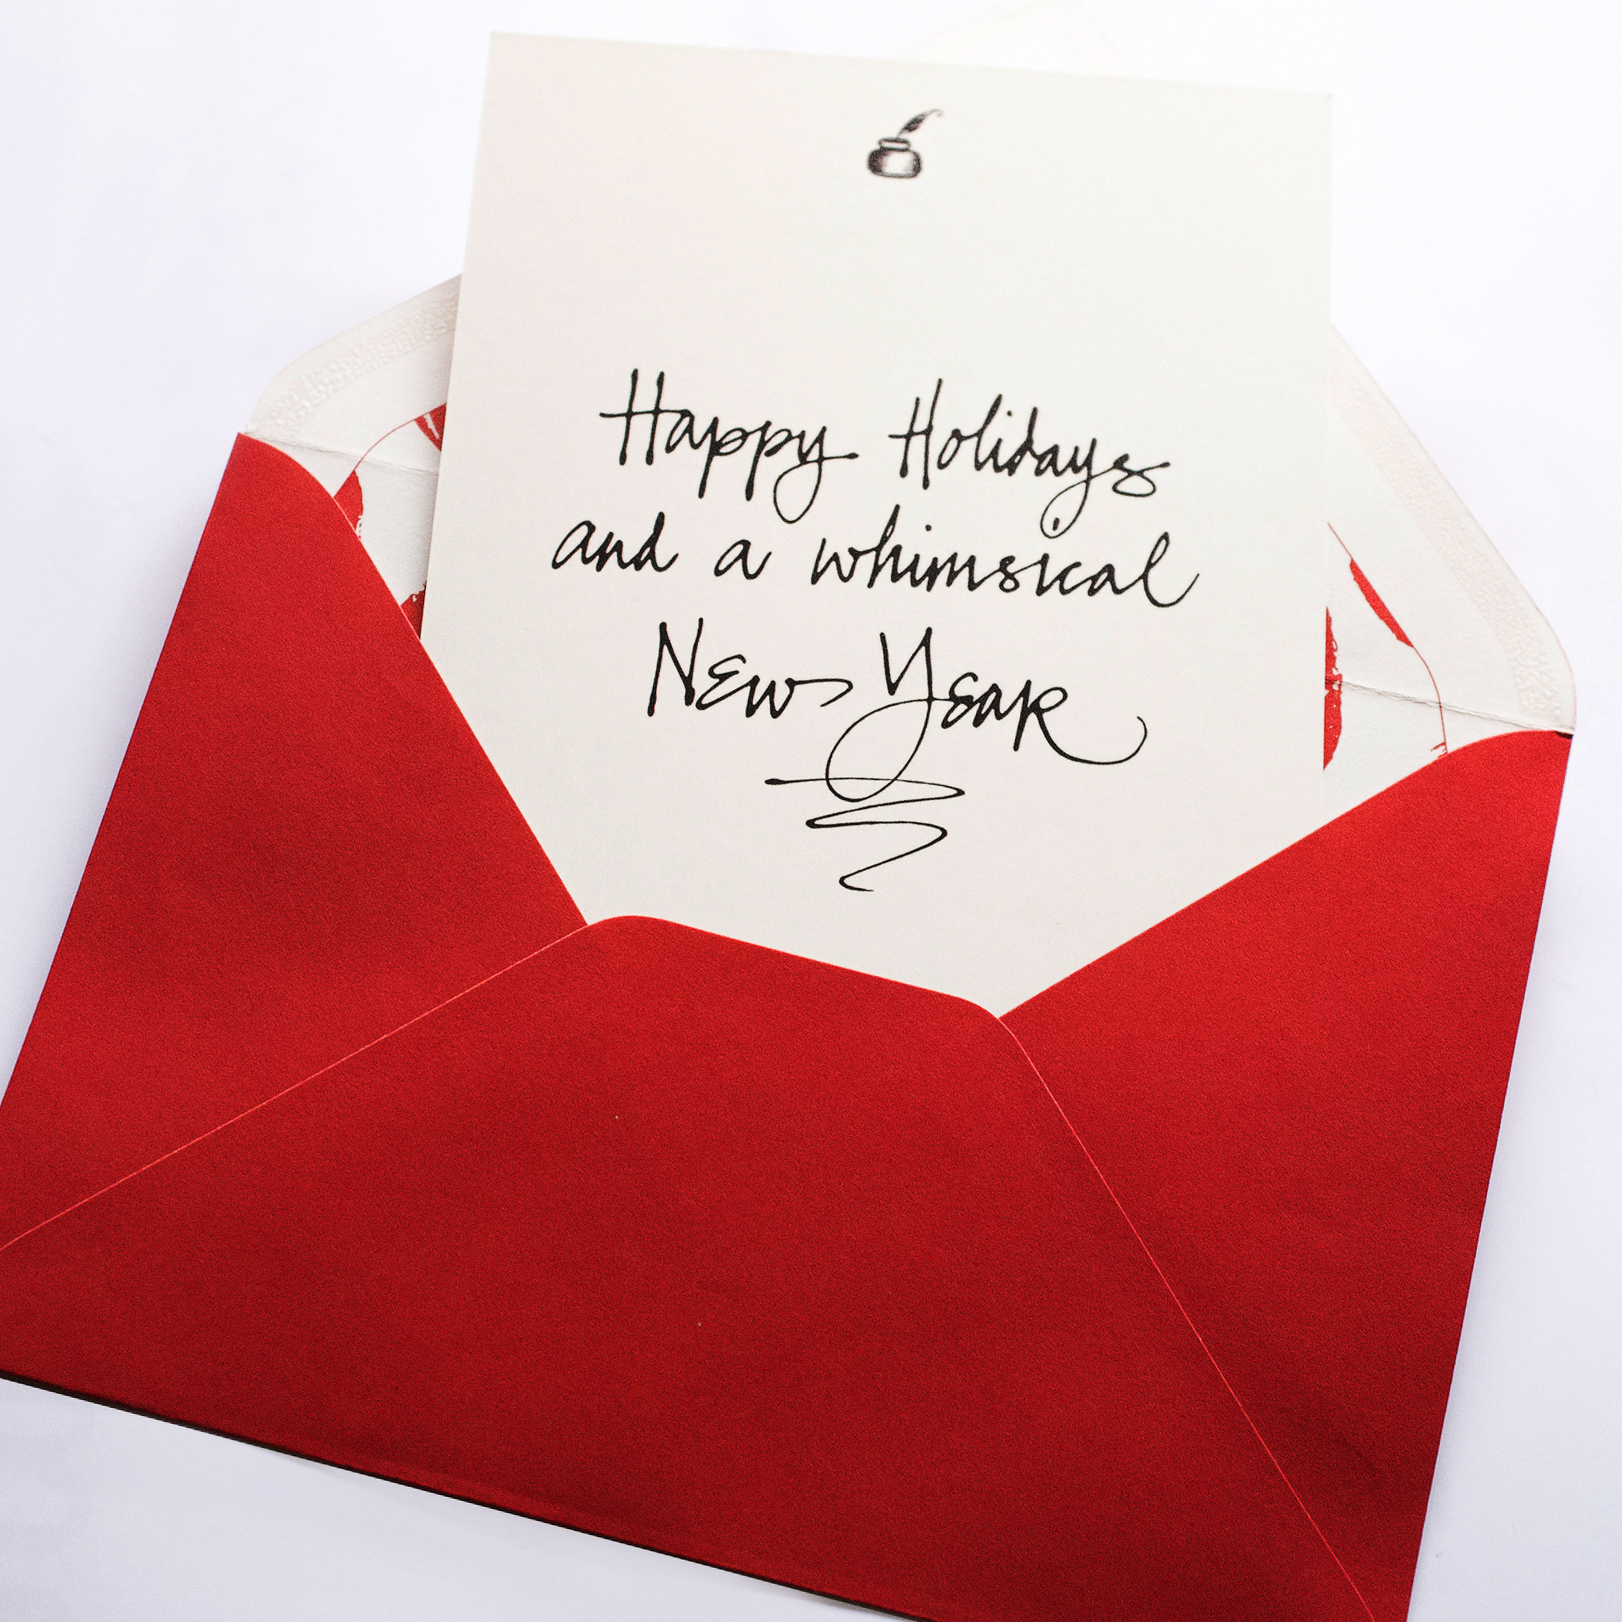 Happy Holidays
and a whimsical
New Year